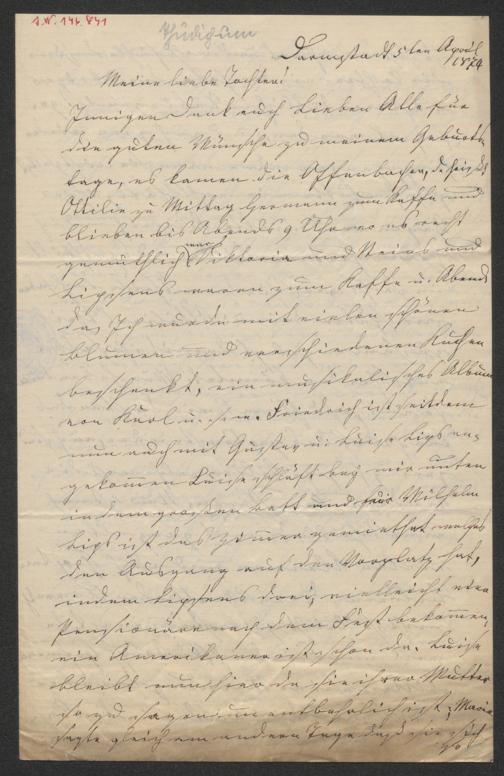 I.N. 146.841
Thudichum
Darmstadt 5ten April
1874
Meine liebe Tochter!
Innigen Dank euch lieben Alle für
die guten Wünsche zu meinem Geburts
tage, es kamen die Offenbacher,
Ottilie zu Mittag Hermann zum Kaffe und
blieben bis Abends 9 Uhr wo es recht
gemüthlich war Viktoria und Steins und
Lipsens waren zum Kaffe u. Abend
da, Ich wurde mit vielen schönen
Blumen und verschiedenen Kuchen
beschenkt, ein musikalisches Album
von Karl u. s. w. Friedrich ist seitdem
nun auch mit Gustav u. Luise Lips an
gekommen Luise schläft bey mir unten
in dem großen Bett und für Wilhelm
Lips ist das Zimmer gemiethet welches
den Ausgang auf den Vorplatz hat,
indem Lipsens drei, vielleicht vier
Pensionäre nach dem Fest bekommen,
ein Amerikaner ist schon da. Luise
bleibt nun hier da sie ihrer Mutter
so zu sagen unentbehrlich ist, Marie
sagte gleich am andern Tage daß sie sich